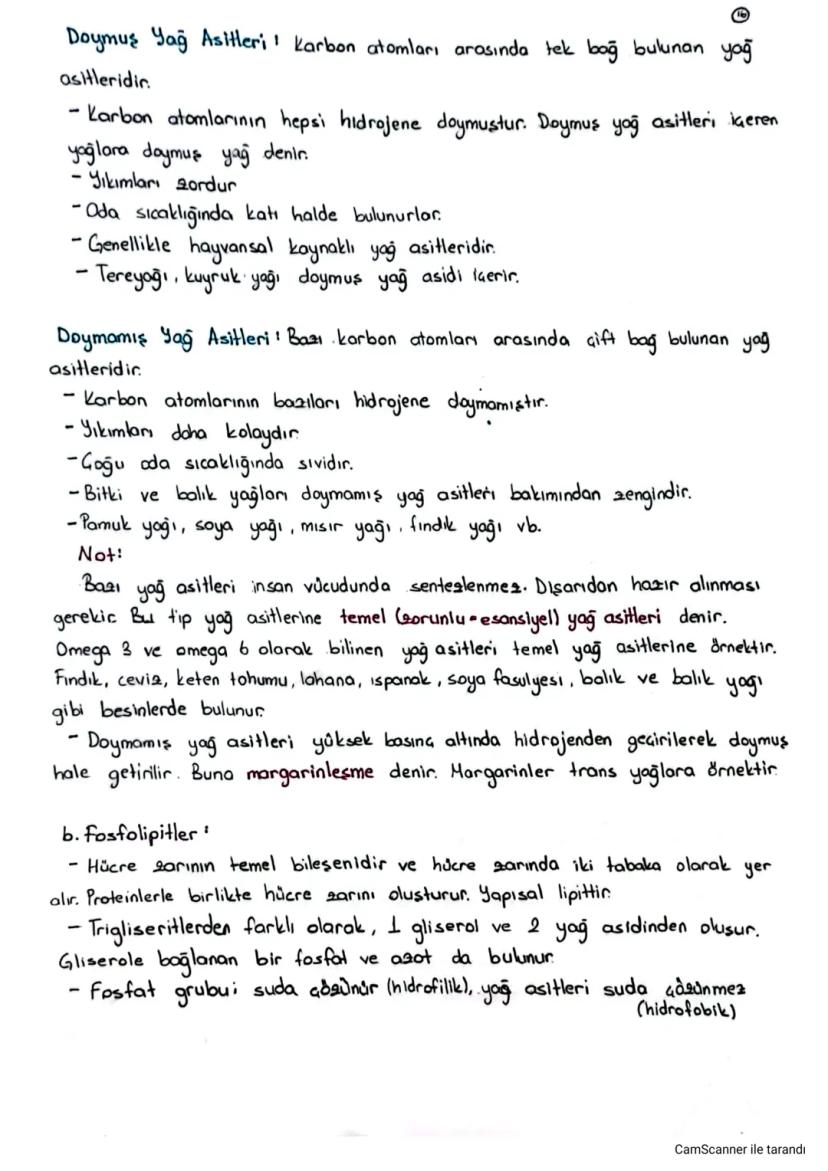 16
Doymuş Yağ Asitleri: Karbon atomları arasında tek bağ bulunan yağ
asitleridir.
- Karbon atomlarının hepsi hidrojene doymuştur. Doymuş yağ asitleri içeren
yağlara doymuş yağ denir.
- Yıkımları zordur
- Oda sıcaklığında katı halde bulunurlar.
- Genellikle hayvansal kaynaklı yağ asitleridir.
- Tereyağı, kuyruk yağı doymuş yağ asidi içerir.
Doymamış Yağ Asitleri: Bazı karbon atomları arasında çift bağ bulunan yağ
asitleridir.
- Karbon atomlarının bazıları hidrojene doymamıştır.
- Yıkımları daha kolaydır
- Çoğu oda sıcaklığında sıvıdır.
- Bitki ve balık yağları doymamış yağ asitleri bakımından zengindir.
- Pamuk yağı, soya yağı, mısır yağı, fındık yağı vb.
Not:
Bazı yağ asitleri insan vücudunda sentezlenmez. Dışarıdan hazır alınması
gerekir. Bu tip yağ asitlerine temel (zorunlu-esansiyel) yağ asitleri denir.
Omega 3 ve omega 6 olarak bilinen yağ asitleri temel yağ asitlerine örnektir.
Fındık, ceviz, keten tohumu, lahana, ıspanak, soya fasulyesi, balık ve balık yağı
gibi besinlerde bulunur.
- Doymamış yağ asitleri yüksek basınç altında hidrojenden geçirilerek doymuş
hale getirilir. Buna margarinleşme denir. Margarinler trans yağlara örnektir.
b. Fosfolipitler:
- Hücre zarının temel bileşenidir ve hücre zarında iki tabaka olarak yer
alır. Proteinlerle birlikte hücre zarını oluşturur. Yapısal lipittir.
- Trigliseritlerden farklı olarak, 1 gliserol ve 2 yağ asidinden oluşur.
Gliserole bağlanan bir fosfat ve azot da bulunur.
- Fosfat grubu; suda çözünür (hidrofilik), yağ asitleri suda çözünmez
(hidrofobik)
CamScanner ile tarandı